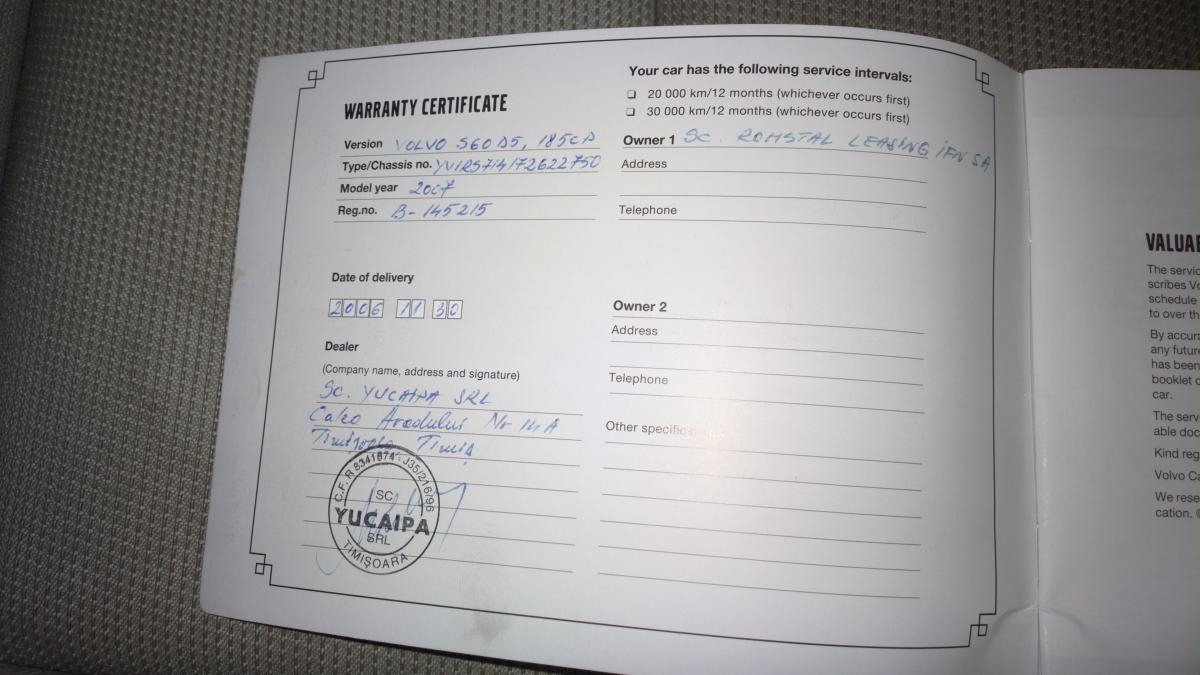 WARRANTY CERTIFICATE
Version VOLVO S60 D5, 185CP
Type/Chassis no. YV1RS714172622750
Model year 2007
Reg.no. B-145215
Date of delivery
2006 11 30
Dealer
(Company name, address and signature)
SC. YUCAIPA SRL
Calea Aradului Nr 14A
Timișoara Timiș
C.F. R 8341674 - J35/216/96
SC
YUCAIPA
SRL
TIMIȘOARA
Your car has the following service intervals:
20 000 km/12 months (whichever occurs first)
30 000 km/12 months (whichever occurs first)
Owner 1 SC. ROMSTAL LEASING IFN SA
Address
Telephone
Owner 2
Address
Telephone
Other specific
VALUAB
The servic
scribes Vo
schedule
to over th
By accura
any future
has been
booklet o
car.
The serv
able doc
Kind reg
Volvo Ca
We rese
cation. ©